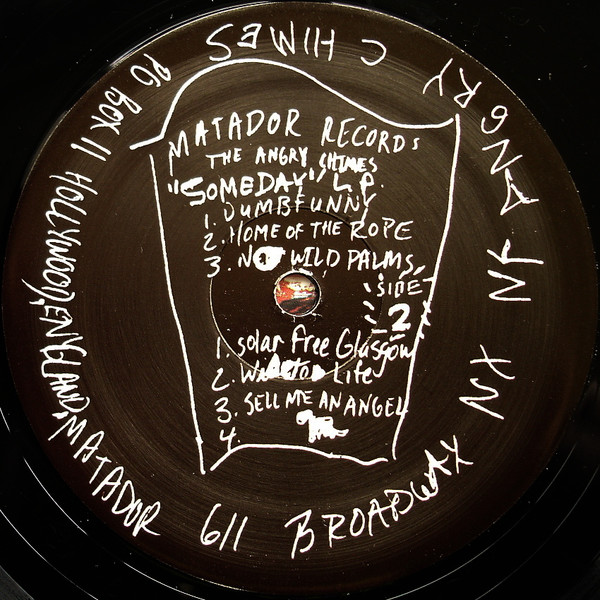 MATADOR RECORDS
THE ANGRY CHIMES
"SOMEDAY" L.P.
1. DUMBFUNNY
2. HOME OF THE ROPE
3. NOT WILD PALMS
SIDE
2
1. solar free Glasgow
2. Life
3. SELL ME AN ANGEL
4.
ANGRY CHIMES
PO BOX 11 HOLLYWOOD, ENGLAND, MATADOR 611 BROADWAY NY NY